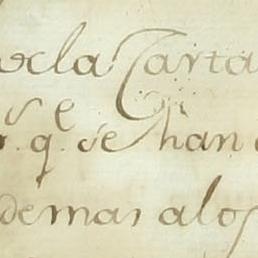 de la Carta
s.e q.e se han
demas a los